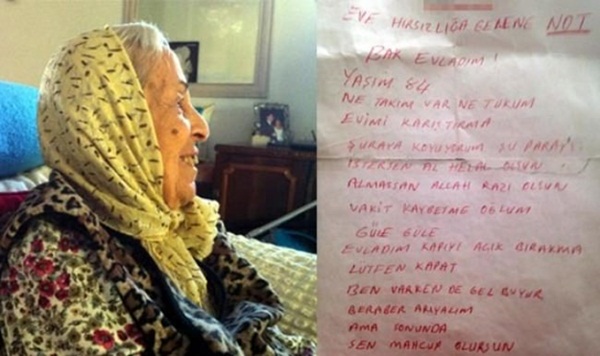 EVE HIRSIZLIĞA GELENE NOT
BAK EVLADIM!
YAŞIM 84
NE TAKIM VAR NE TURUM
EVİMİ KARIŞTIRMA
ŞURAYA KOYUYORUM ŞU PARAYI
İSTERSEN AL HELAL OLSUN
ALMASSAN ALLAH RAZI OLSUN
VAKİT KAYBETME OĞLUM
GÜLE GÜLE
EVLADIM KAPIYI AÇIK BIRAKMA
LÜTFEN KAPAT
BEN VARKEN DE GEL BUYUR
BERABER ARIYALIM
AMA SONUNDA
SEN MAHCUP OLURSUN